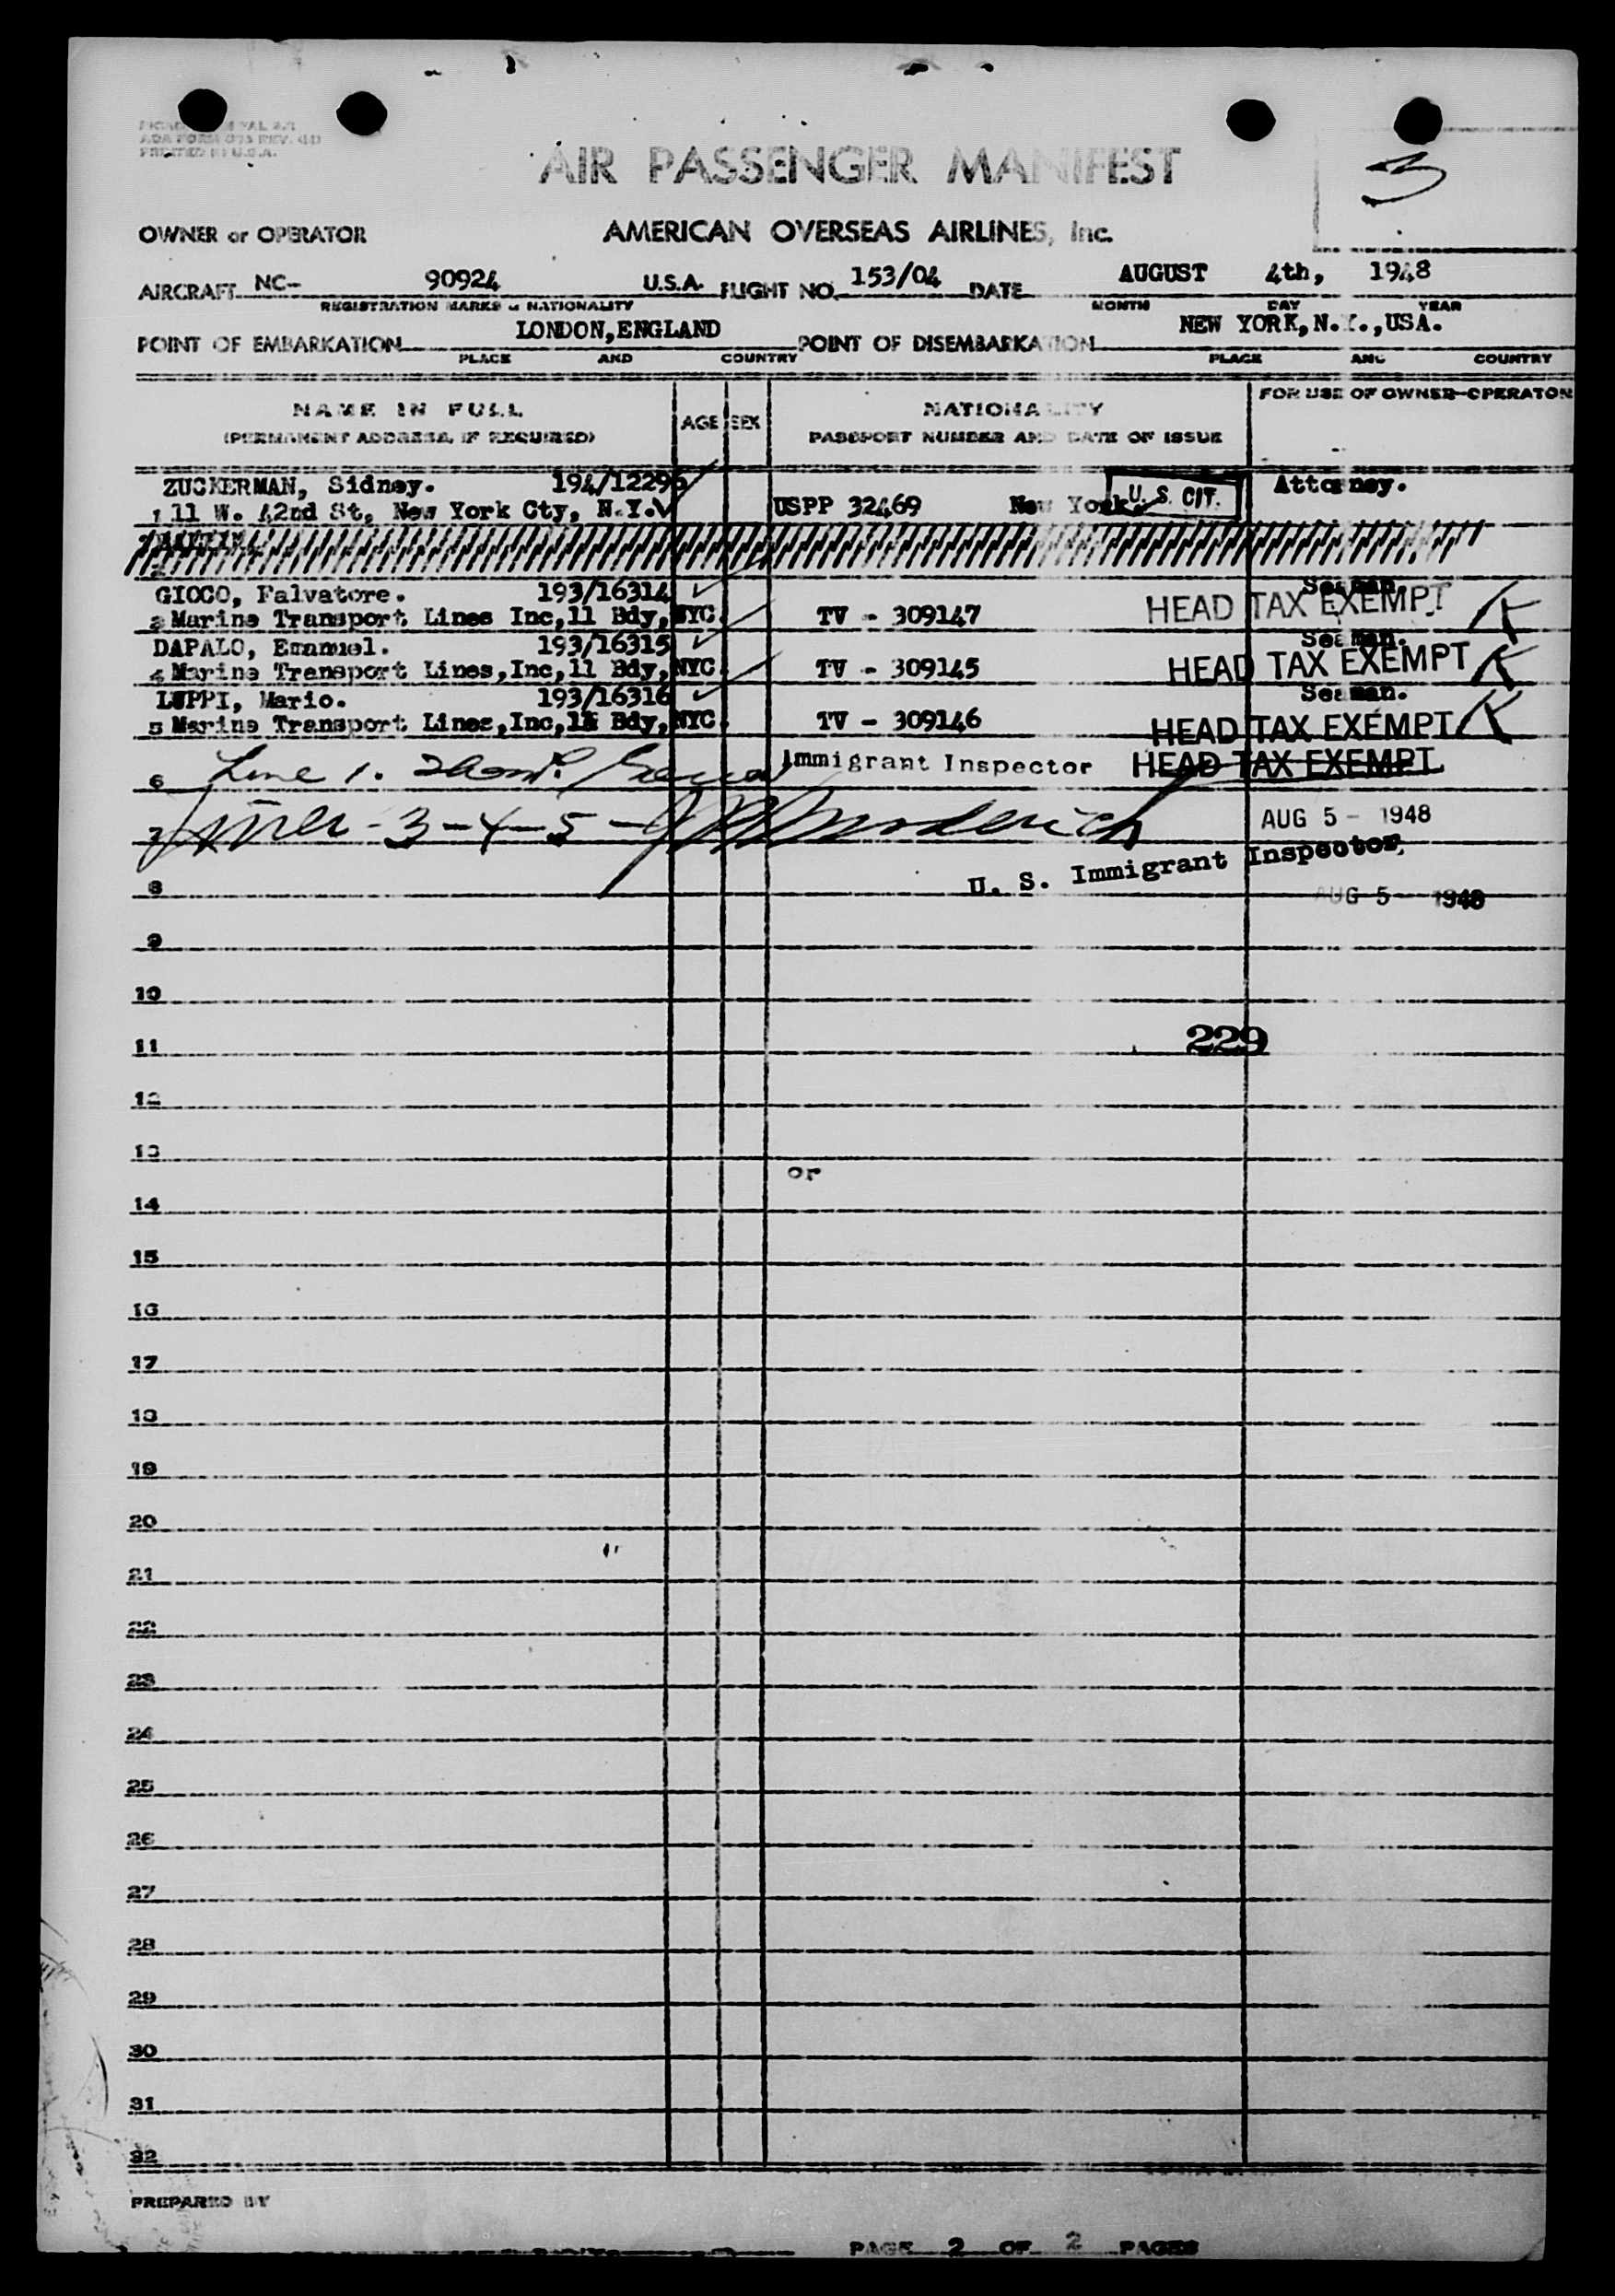 PRINTED IN U.S.A.
AIR PASSENGER MANIFEST
3
OWNER or OPERATOR AMERICAN OVERSEAS AIRLINES, Inc.
AIRCRAFT NC- 90924 U.S.A. FLIGHT NO. 153/04 DATE AUGUST 4th, 1948
REGISTRATION MARKS & NATIONALITY MONTH DAY YEAR
POINT OF EMBARKATION LONDON,ENGLAND POINT OF DISEMBARKATION NEW YORK,N.Y.,USA.
PLACE AND COUNTRY PLACE AND COUNTRY
NAME IN FULL AGE SEX NATIONALITY FOR USE OF OWNER-OPERATOR
(PERMANENT ADDRESS, IF REQUIRED) PASSPORT NUMBER AND DATE OF ISSUE
ZUCKERMAN, Sidney. 194/12296 Attorney.
1 11 W. 42nd St, New York Cty, N.Y. USPP 32469 New York. U. S. CIT.
GIOCO, Falvatore. 193/16314 Seaman.
3 Marine Transport Lines Inc,11 Bdy,NYC. TV - 309147 HEAD TAX EXEMPT
DAPALO, Emanuel. 193/16315 Seaman.
4 Marine Transport Lines,Inc,11 Bdy,NYC. TV - 309145 HEAD TAX EXEMPT
LUPPI, Mario. 193/16316 Seaman.
5 Marine Transport Lines,Inc,11 Bdy,NYC. TV - 309146 HEAD TAX EXEMPT
6 Line 1. Immigrant Inspector HEAD TAX EXEMPT
7 Lines - 3-4-5 - AUG 5 - 1948
8 U. S. Immigrant Inspector.
AUG 5 - 1948
9
10
11 229
12
13
or
14
15
16
17
18
19
20
21
22
23
24
25
26
27
28
29
30
31
32
PREPARED BY
PAGE 2 OF 2 PAGES